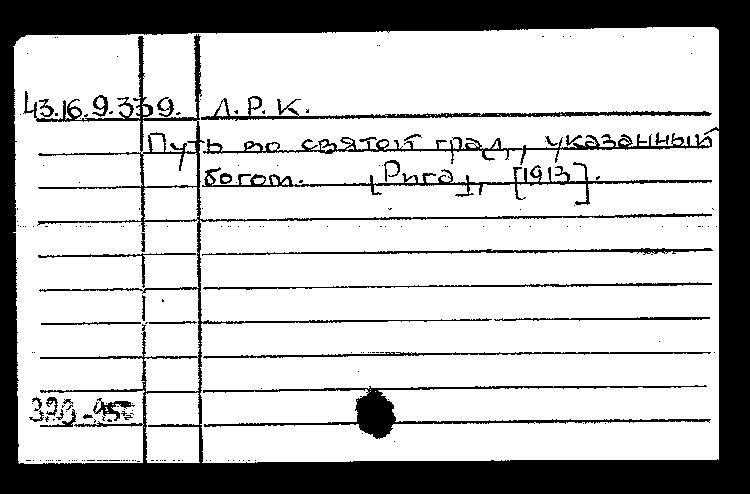 43.16.9.339. Л.Р.К.
Путь во святой град, указанный
богом. [Рига], [1913].